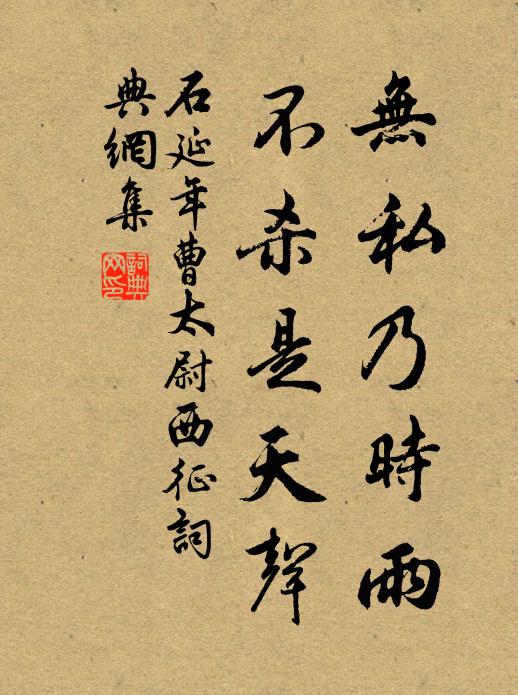 無私乃時雨
不杀是天聲
石延年曹太尉西征詞
典網集
詞典
网印